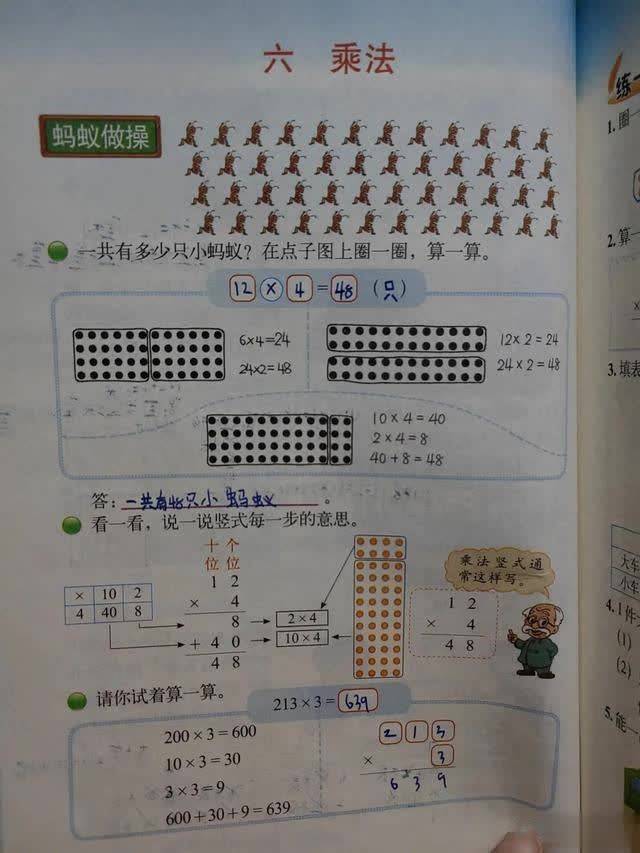 六 乘法
蚂蚁做操
一共有多少只小蚂蚁？在点子图上圈一圈，算一算。
12 × 4 = 48 （只）
6×4=24
24×2=48
12×2=24
24×2=48
10×4=40
2×4=8
40+8=48
答：一共有48只小蚂蚁。
看一看，说一说竖式每一步的意思。
十 个
位 位
1 2
× 4
8
+ 4 0
4 8
× 10 2
4 40 8
2×4
10×4
乘法竖式通
常这样写。
1 2
× 4
4 8
请你试着算一算。
213×3= 639
200×3=600
10×3=30
3×3=9
600+30+9=639
2 1 3
× 3
6 3 9
练一
1. 圈一
2. 算一
×
3. 填表
大车
小车
4. 1件
(1)
(2)
5. 能一